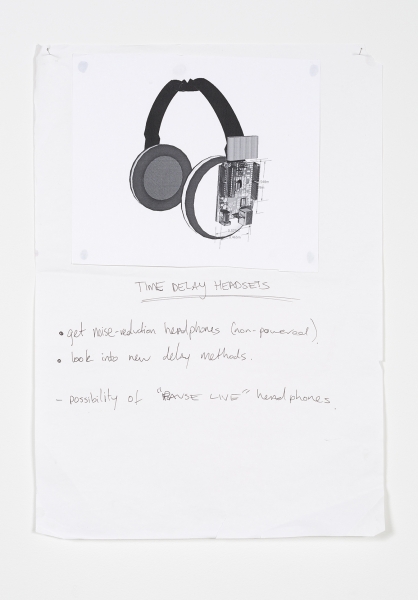 TIME DELAY HEADSETS
• get noise-reduction headphones (non-powered).
• look into new delay methods.
- possibility of "PAUSE LIVE" headphones.